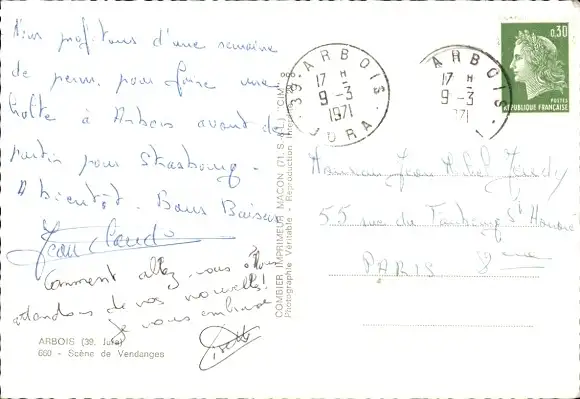 Nous profitons d'une semaine
de perm. pour faire une
halte à Arbois avant de
partir pour Strasbourg.
A bientôt. Bons Baisers
Jean Claude
Comment allez-vous? Nous
attendons de vos nouvelles!
Je vous embrasse
ARBOIS (39. Jura)
660 - Scène de Vendanges
COMBIER IMPRIMEUR MACON (71, S.-&-L.) "CIM"
Photographie Véritable - Reproduction
39 ARBOIS
17 H
9-3
1971
JURA
ARBOIS
17 H
9-3
71
0,30
POSTES
REPUBLIQUE FRANÇAISE
Monsieur Jean
55 rue du Faubourg St Honoré
PARIS 8eme